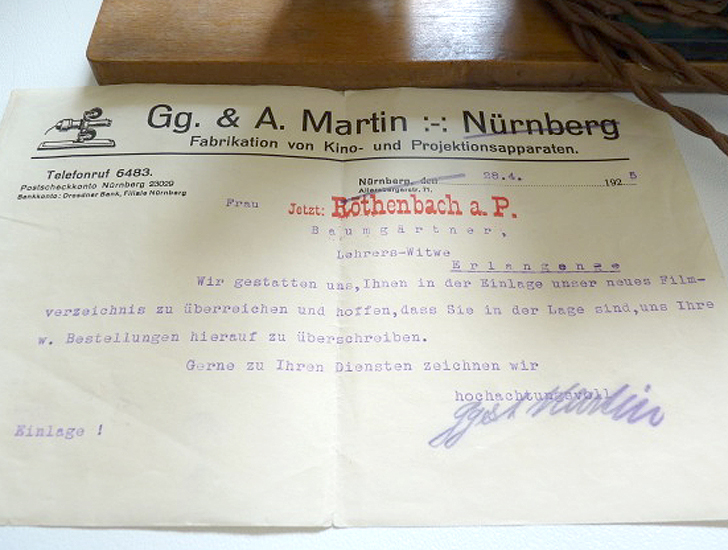 Gg. & A. Martin :-: Nürnberg
Fabrikation von Kino- und Projektionsapparaten.
Telefonruf 6483.
Postscheckkonto Nürnberg 23029
Bankkonto: Dresdner Bank, Filiale Nürnberg
Nürnberg, den 28.4. 1925
Allersbergerstr. 71.
Frau Jetzt: Röthenbach a. P.
Baumgärtner,
Lehrers-Witwe
Erlangen
Wir gestatten uns,Ihnen in der Einlage unser neues Film-
verzeichnis zu überreichen und hoffen,dass Sie in der Lage sind,uns Ihre
w. Bestellungen hierauf zu überschreiben.
Gerne zu Ihren Diensten zeichnen wir
hochachtungsvoll
Gg & A Martin
Einlage !